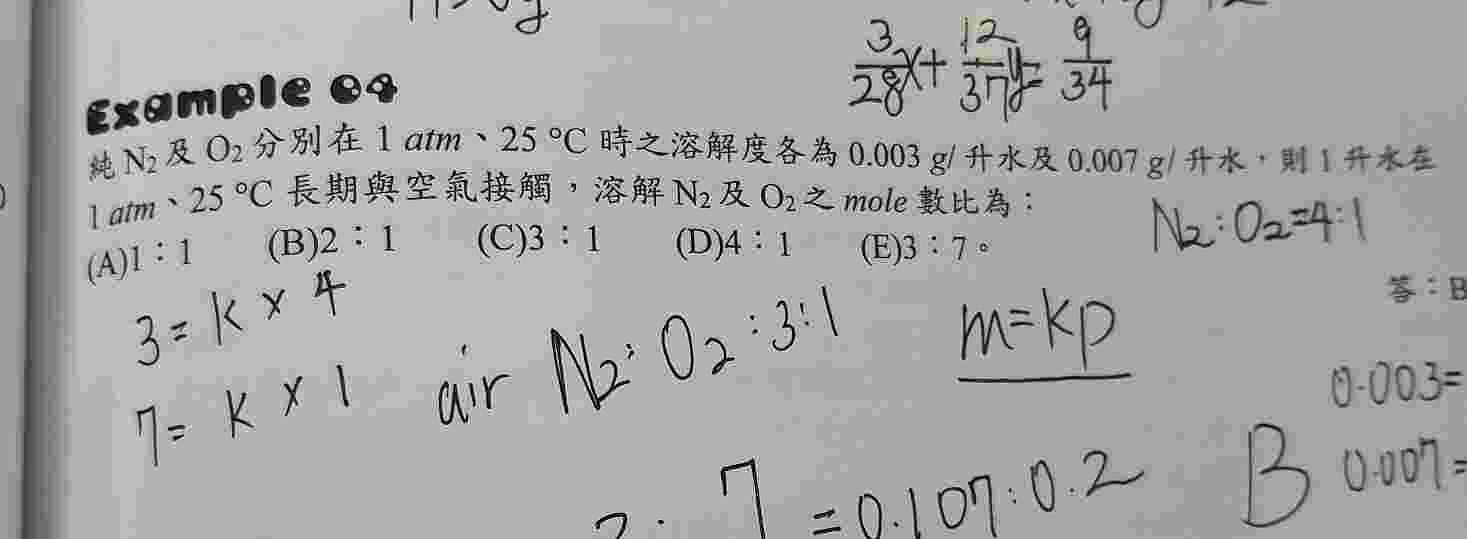 3/28 x + 12/37 y = 9/34
Example 04
純 N₂ 及 O₂ 分別在 1 atm、25 °C 時之溶解度各為 0.003 g/ 升水及 0.007 g/ 升水，則 1 升水在
1 atm、25 °C 長期與空氣接觸，溶解 N₂ 及 O₂ 之 mole 數比為：
(A)1：1 (B)2：1 (C)3：1 (D)4：1 (E)3：7。
N₂:O₂=4:1
答：B
3 = K × 4
7 = K × 1
air N₂: O₂ :3:1
m=kp
0.003=
0.007=
B
: 7 = 0.107:0.2